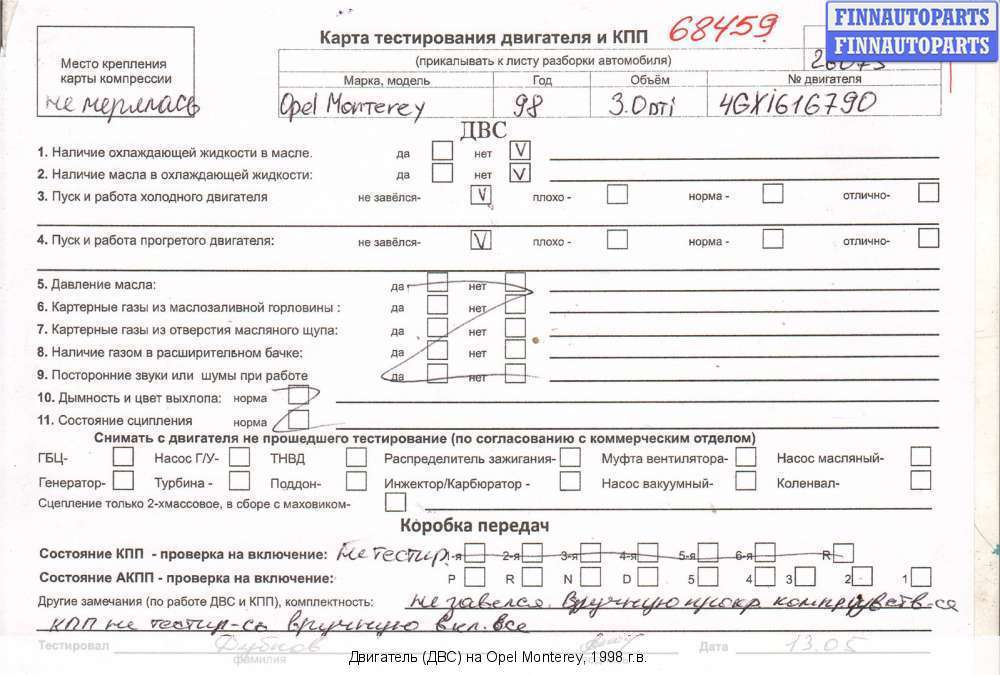 FINNAUTOPARTS
FINNAUTOPARTS
Карта тестирования двигателя и КПП 68459
(прикалывать к листу разборки автомобиля) 26073
Место крепления карты компрессии
не мерялась
Марка, модель Год Объём № двигателя
Opel Monterey 98 3.0 DTI 4GXi616790
ДВС
1. Наличие охлаждающей жидкости в масле. да нет V
2. Наличие масла в охлаждающей жидкости: да нет V
3. Пуск и работа холодного двигателя не завёлся- V плохо - норма - отлично-
4. Пуск и работа прогретого двигателя: не завёлся- V плохо - норма - отлично-
5. Давление масла: да нет
6. Картерные газы из маслозаливной горловины : да нет
7. Картерные газы из отверстия масляного щупа: да нет
8. Наличие газом в расширительном бачке: да нет
9. Посторонние звуки или шумы при работе да нет
10. Дымность и цвет выхлопа: норма
11. Состояние сцепления норма
Снимать с двигателя не прошедшего тестирование (по согласованию с коммерческим отделом)
ГБЦ- Насос Г/У- ТНВД Распределитель зажигания- Муфта вентилятора- Насос масляный-
Генератор- Турбина - Поддон- Инжектор/Карбюратор - Насос вакуумный- Коленвал-
Сцепление только 2-хмассовое, в сборе с маховиком-
Коробка передач
Состояние КПП - проверка на включение: Не тестир. 1-я 2-я 3-я 4-я 5-я 6-я R
Состояние АКПП - проверка на включение: P R N D 5 4 3 2 1
Другие замечания (по работе ДВС и КПП), комплектность: не завелся. Вручную
КПП не тестир-сь вручную вкл. все
Тестировал Дубков Дата 13.05
фамилия
Двигатель (ДВС) на Opel Monterey, 1998 г.в.